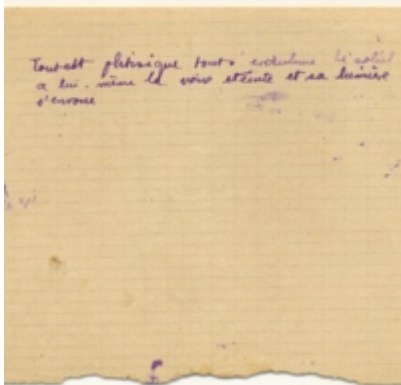 Tout est phtisique tout s' enrhume le soleil
a lui-même la voix éteinte et sa lumière
s'enroue